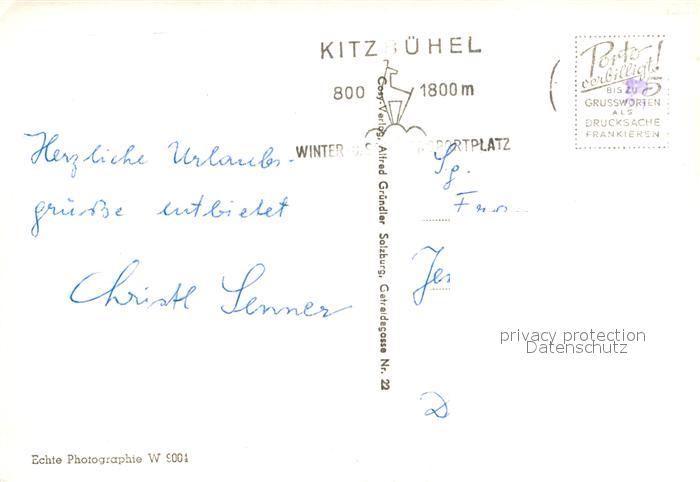 KITZBÜHEL
800 1800 m
WINTER U. SPORTPLATZ
Porto
verbilligt!
BIS ZU 5
GRUSSWORTEN
ALS
DRUCKSACHE
FRANKIEREN
Herzliche Urlaubs-
grüße entbietet
Christl Senner
Cosy-Verlag, Alfred Gründler Salzburg, Getreidegasse Nr. 22
Sg.
privacy protection
Datenschutz
D
Echte Photographie W 9004